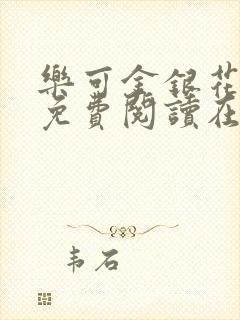 樂可金銀花
免費閱讀在
韦石